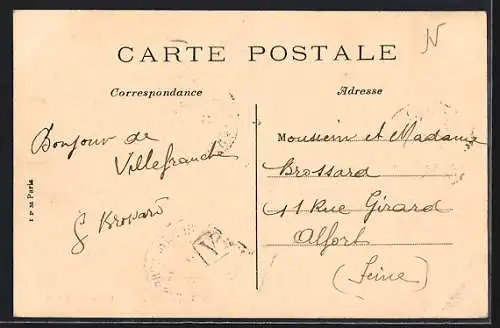 CARTE POSTALE
Correspondance
Adresse
Bonjour de
Villefranche
Monsieur et Madame
Brossard
11 Rue Girard
Alfort
(Seine)
Paris